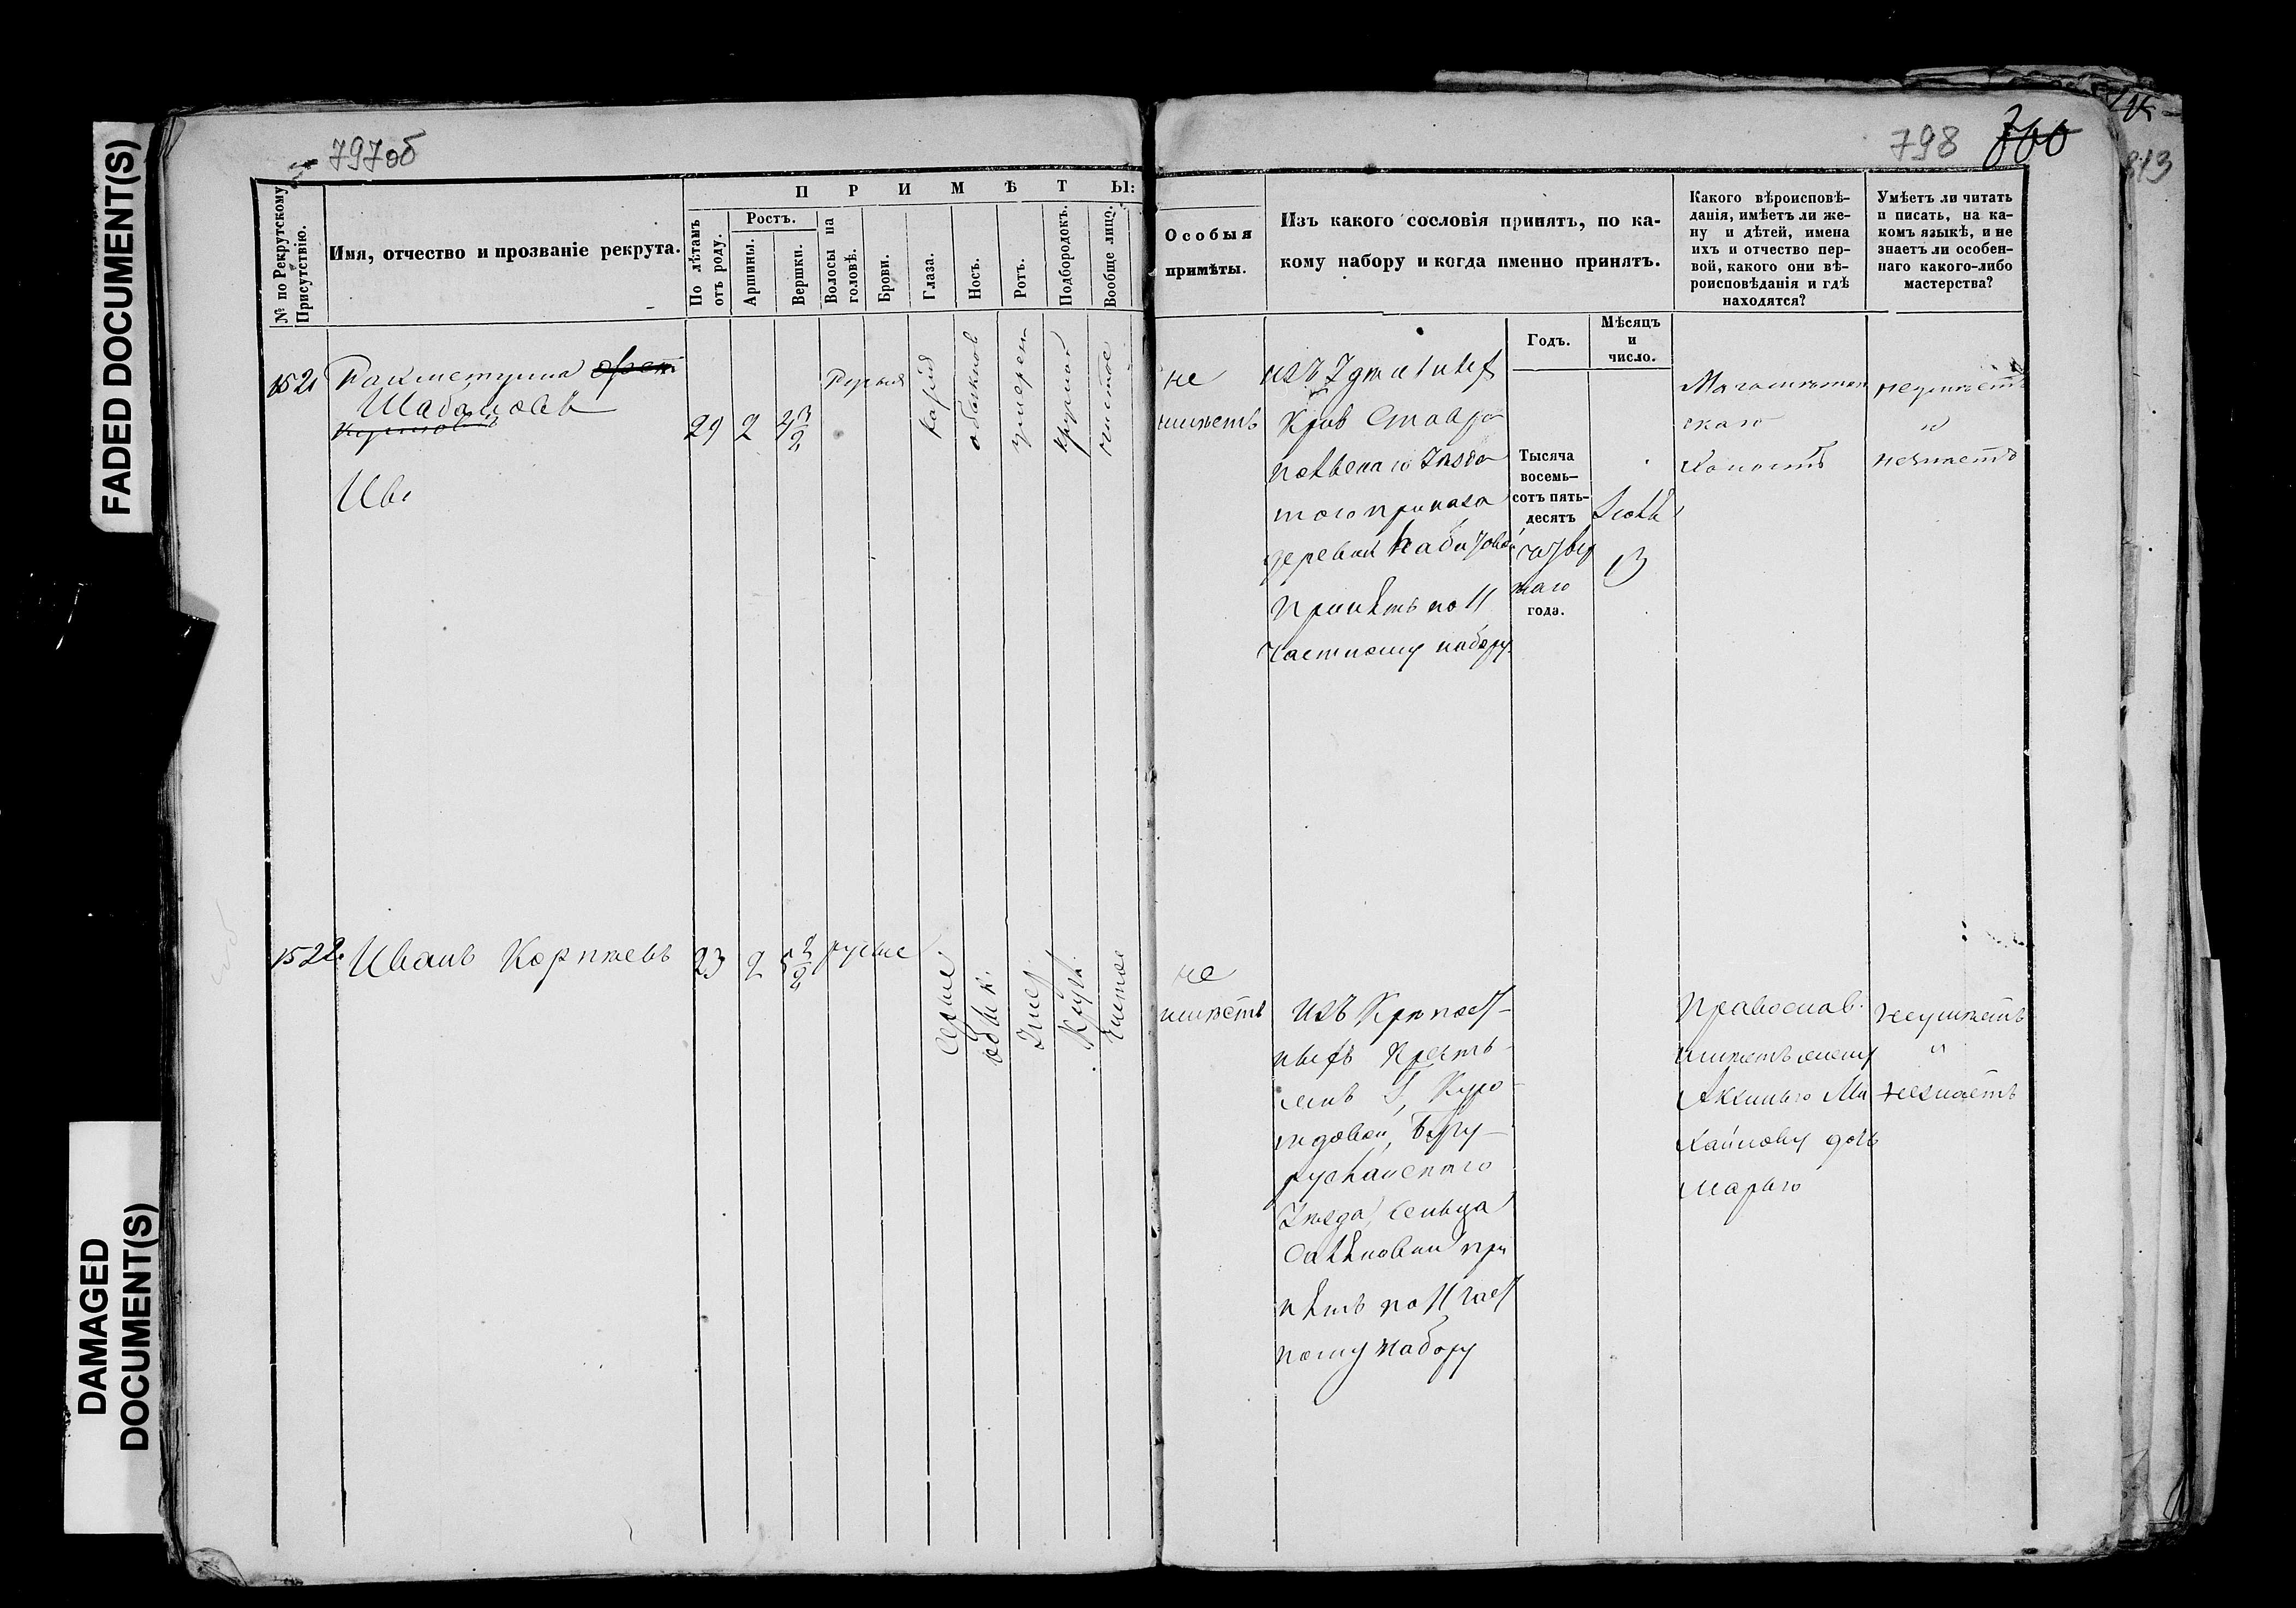 FADED DOCUMENT(S)
DAMAGED
DOCUMENT(S)
797об
№ по Рекрутскому
Присутствію.
Имя, отчество и прозваніе рекрута.
П Р И М Ѣ Т Ы:
По лѣтамъ
отъ роду.
Ростъ.
Аршины.
Вершки.
Волосы на
головѣ.
Брови.
Глаза.
Носъ.
Ротъ.
Подбородокъ.
Вообще лицо.
1521
Шабановъ
Ива
29
2
4 3/2
карія
обыкнов
умерен
круглой
чистое
1522.
Иванъ Корнѣевъ
23
2
5 2/2
русые
Серые
обык.
Умер.
Кругл.
чистое
798
813
Особыя
примѣты.
Изъ какого сословія принятъ, по ка-
кому набору и когда именно принятъ.
Годъ.
Мѣсяцъ
и
число.
Какого вѣроисповѣ-
данія, имѣетъ ли же-
ну и дѣтей, имена
ихъ и отчество пер-
вой, какого они вѣ-
роисповѣданія и гдѣ
находятся?
Умѣетъ ли читать
и писать, на ка-
комъ языкѣ, и не
знаетъ ли особен-
наго какого-либо
мастерства?
не
имѣетъ
изъ Удѣльныхъ
Крив Ставро
польскаго Уѣзда
того приказа
деревни
Принятъ по 11
частному набору
Тысяча
восемь-
сотъ пять-
десять
четвер
таго
года.
13
Магометан
скаго
Холостъ
неумѣетъ
и
незнаетъ
не
имѣетъ
изъ Крѣпост-
ныхъ Кресть-
янъ Г, Куро
ѣдовой, Бугу-
русланскаго
Уѣзда, сельца
при
нятъ по 11 част
ному набору
Православ.
имѣетъ жену
Аксинью Ми
хайлову дочь
Марью
неумѣетъ
и
незнаетъ